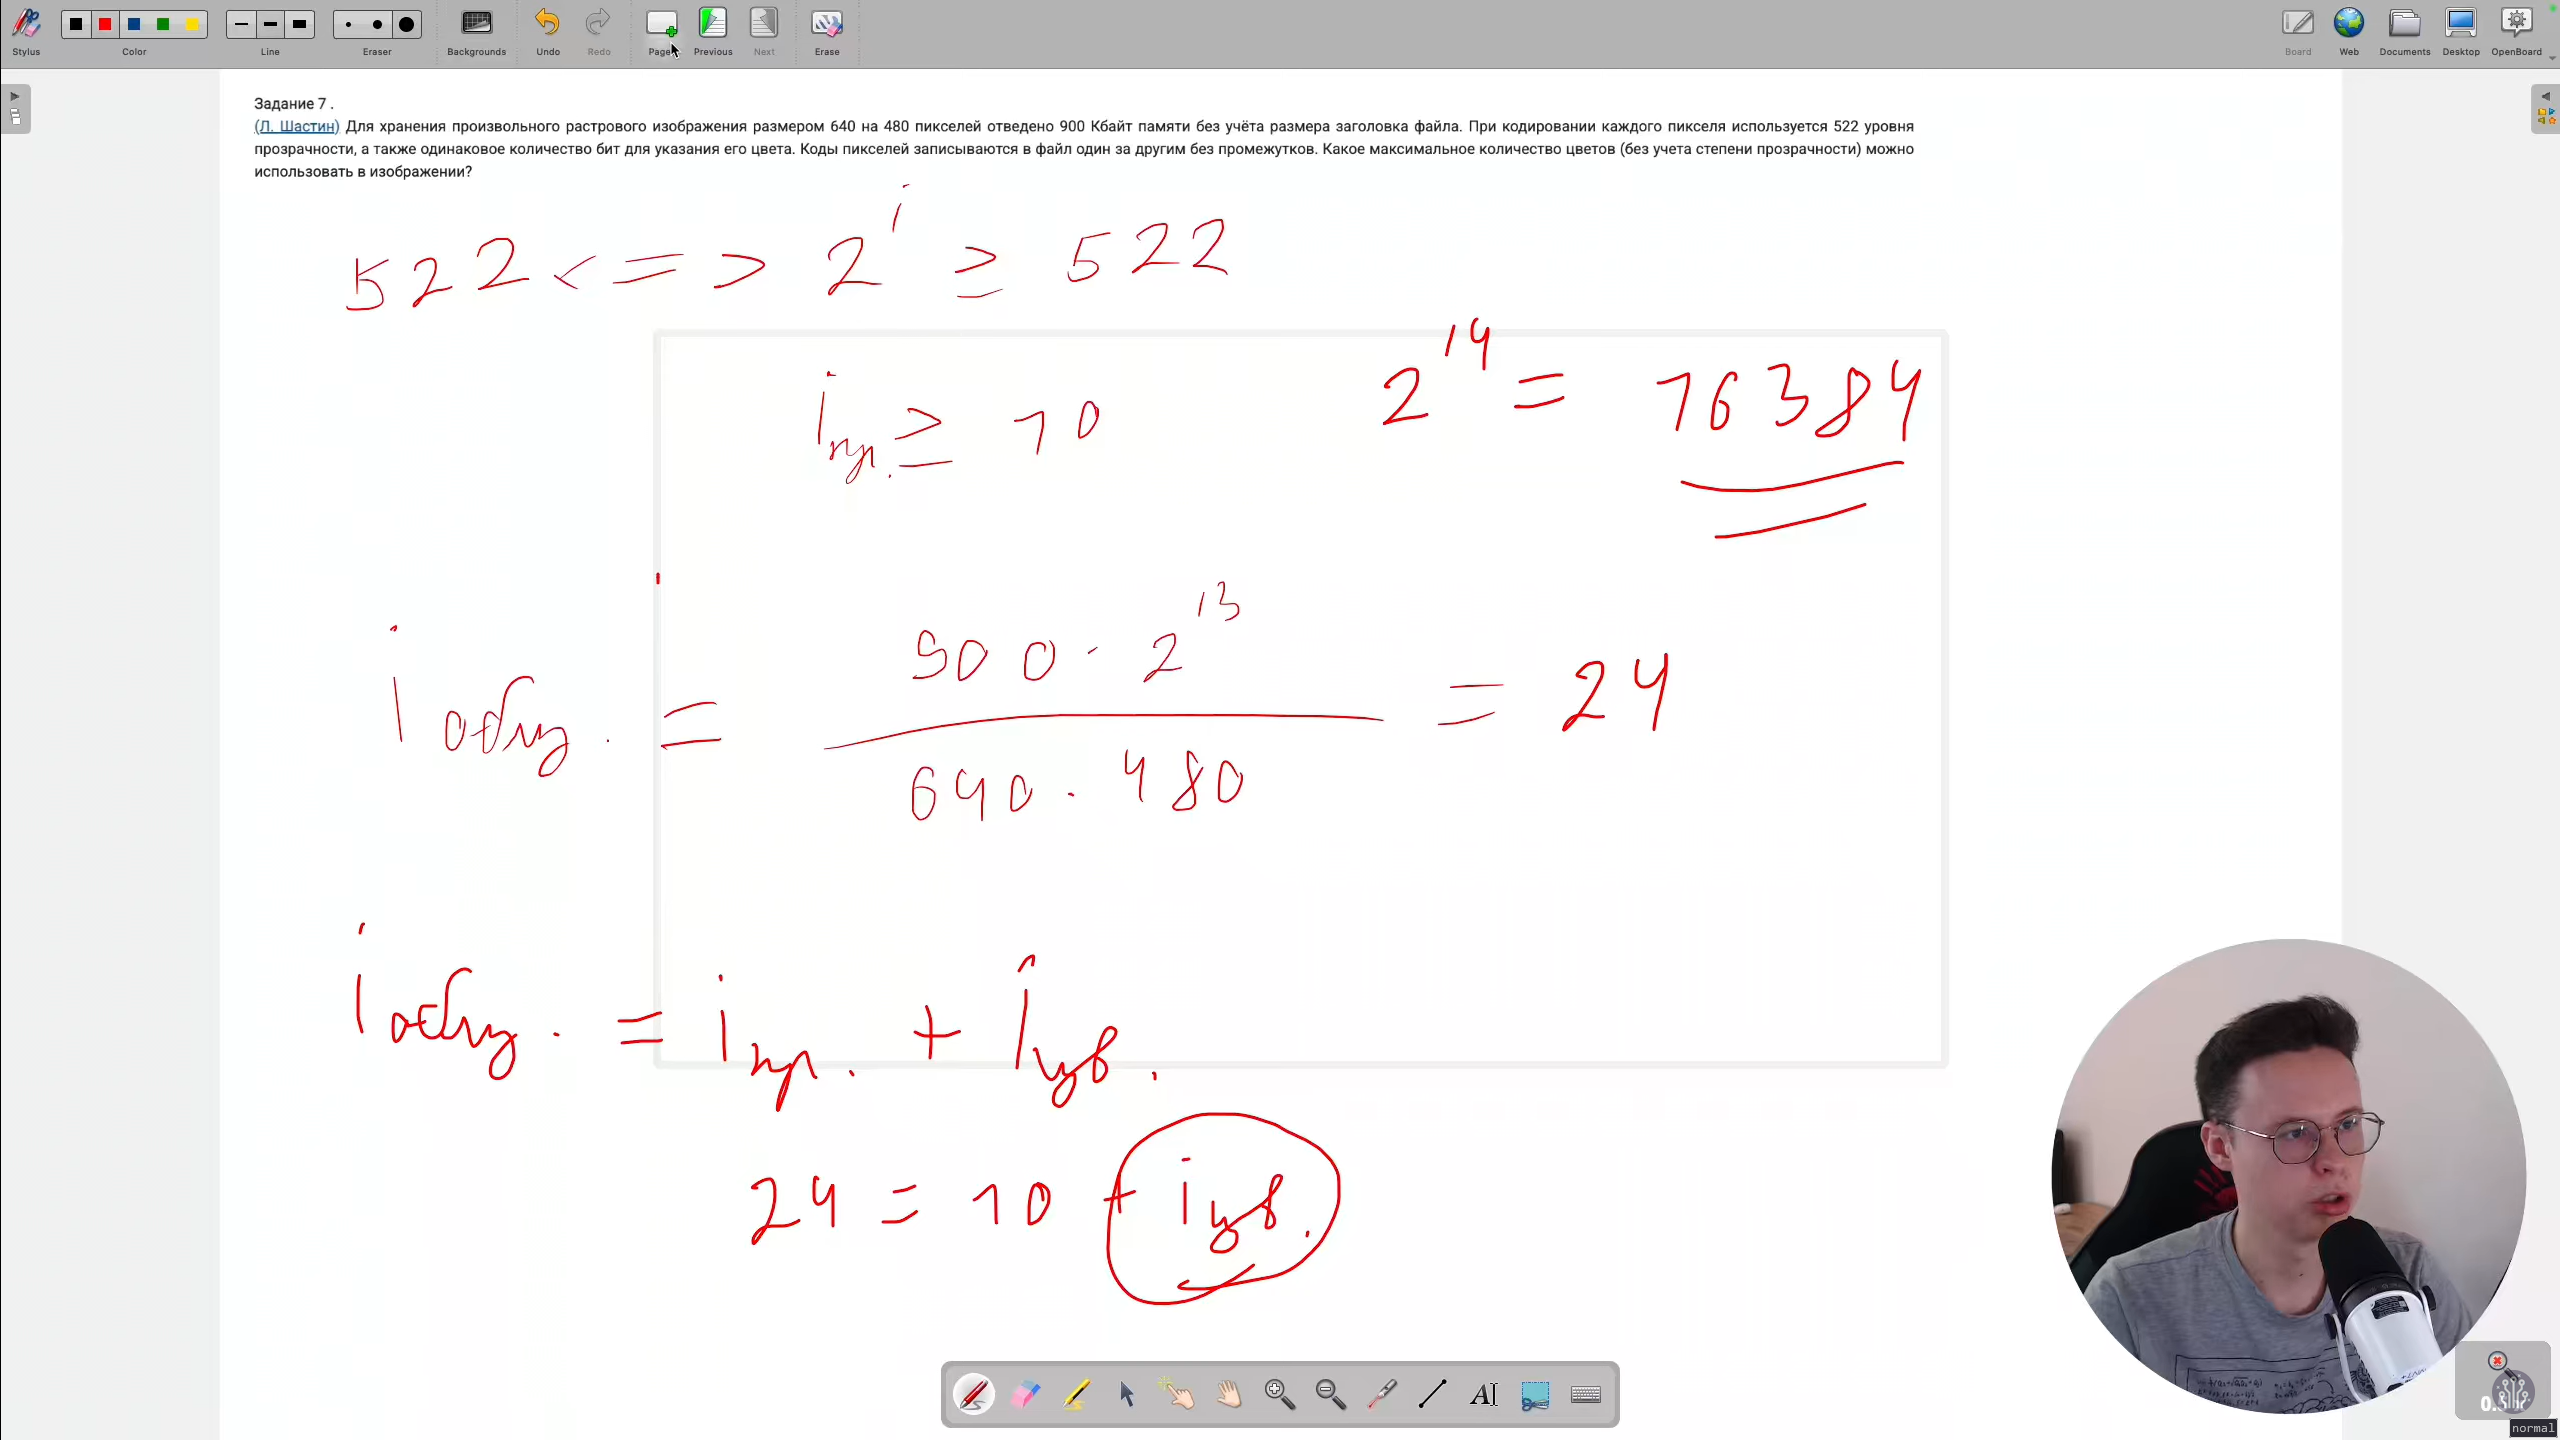 Stylus Color Line Eraser Backgrounds Undo Redo Page Previous Next Erase Board Web Documents Desktop OpenBoard
Задание 7 .
(Л. Шастин) Для хранения произвольного растрового изображения размером 640 на 480 пикселей отведено 900 Кбайт памяти без учёта размера заголовка файла. При кодировании каждого пикселя используется 522 уровня
прозрачности, а также одинаковое количество бит для указания его цвета. Коды пикселей записываются в файл один за другим без промежутков. Какое максимальное количество цветов (без учета степени прозрачности) можно
использовать в изображении?
522 <=> 2^i ≥ 522
i пр. ≥ 10
2^14 = 16384
i общ. = 900 · 2^13 / 640 · 480 = 24
i общ. = i пр. + i цв.
24 = 10 + i цв.
AI
normal